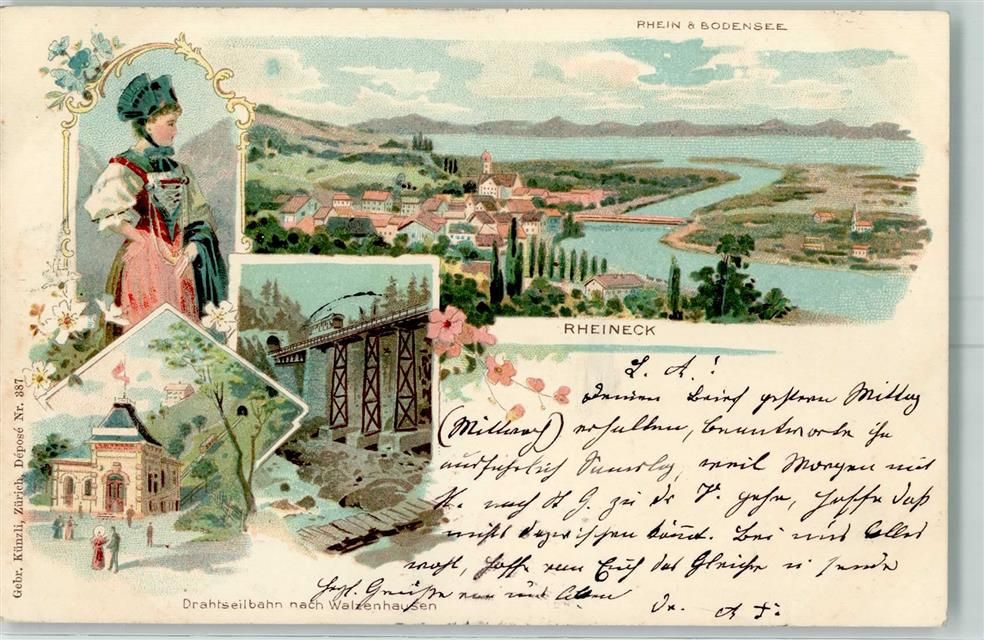 RHEIN & BODENSEE
RHEINECK
L. A. !
Deinen Brief gestern Mittag
(Mittwoch) erhalten, beantworte ihn
ausführlich Samstag, weil Morgen mit
nach St G. zu gehe, hoffe daß
nichts dazwischen kommt. Bei uns Alles
wohl, hoffe von Euch das Gleiche u sende
herzl. Grüße von uns Allen
Dr. A F.
Drahtseilbahn nach Walzenhausen
Gebr. Künzli, Zürich, Déposé Nr. 387